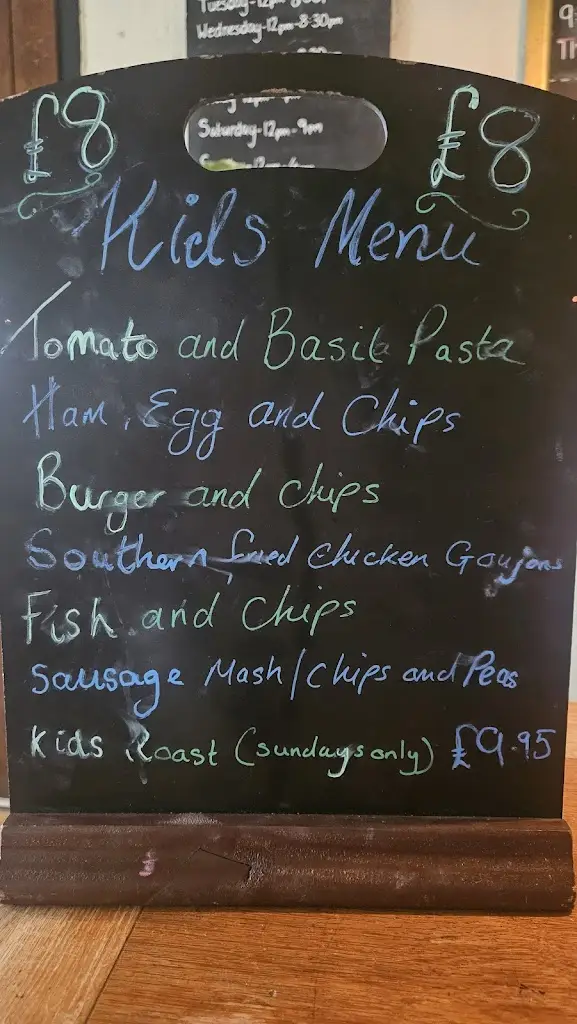 Wednesday-12pm-8:30pm
£8
£8
Saturday-12pm-9pm
Kids Menu
Tomato and Basil Pasta
Ham, Egg and Chips
Burger and chips
Southern fried chicken Goujons
Fish and Chips
Sausage Mash/Chips and Peas
Kids Roast (sundays only) £9.95